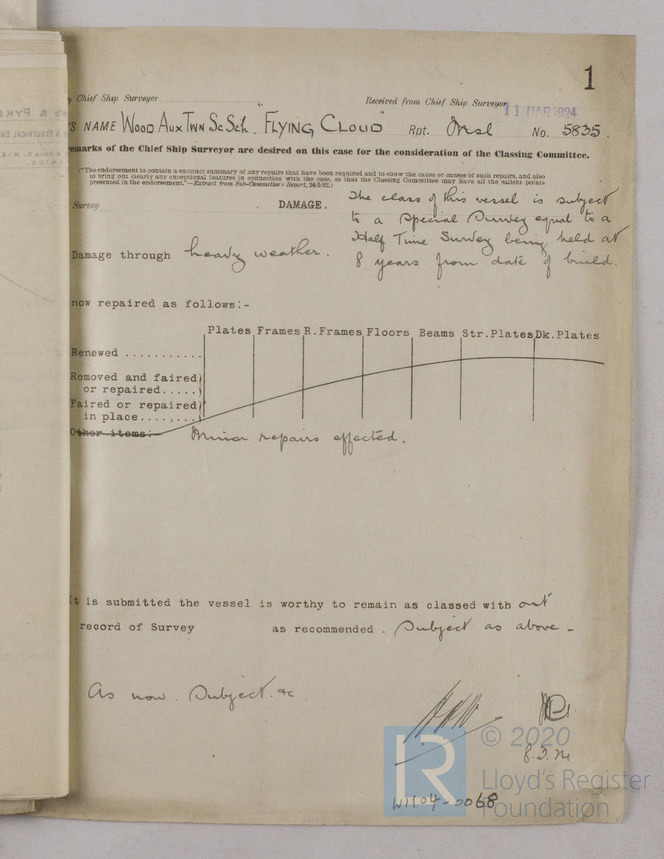 1
Chief Ship Surveyor
Received from Chief Ship Surveyor
11 MAR 1924
'S NAME Wood Aux Twn Sc Sch. "FLYING CLOUD" Rpt. Msl No. 5835.
emarks of the Chief Ship Surveyor are desired on this case for the consideration of the Classing Committee.
"The endorsement to contain a succinct summary of any repairs that have been required and to show the cause or causes of such repairs, and also
to bring out clearly any exceptional features in connection with the case, so that the Classing Committee may have all the salient points
presented in the endorsement."—Extract from Sub-Committee's Report,
Survey
DAMAGE.
The class of this vessel is subject
to a Special Survey equal to a
Half Time Survey being held at
8 years from date of build.
Damage through heavy weather.
now repaired as follows:-
Plates Frames R.Frames Floors Beams Str.Plates Dk.Plates
Renewed ...........
Removed and faired)
or repaired.....)
Faired or repaired)
in place.........
Other items:- Minor repairs effected.
It is submitted the vessel is worthy to remain as classed with out
record of Survey as recommended. Subject as above -
As now. Subject. &c.
8.3.24
W1104-0068
LR
© 2020
Lloyd's Register
Foundation